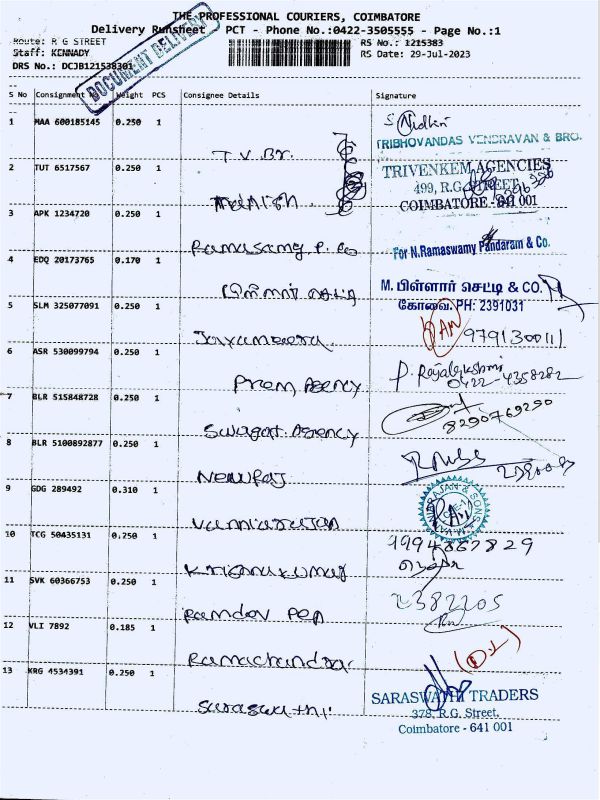 THE PROFESSIONAL COURIERS, COIMBATORE
Delivery Runsheet PCT - Phone No.:0422-3505555 - Page No.:1
Route: R G STREET
RS No.: 1215383
Staff: KENNADY
RS Date: 29-Jul-2023
DRS No.: DCJB121538301
DOCUMENT DELIVERY
S No Consignment No Weight PCS Consignee Details Signature
1 MAA 600185145 0.250 1 T.V.Br. S Nidhin
TRIBHOVANDAS VENDRAVAN & BRO.
2 TUT 6517567 0.250 1
TRIVENKEM AGENCIES
499, R.G. STREET,
COIMBATORE - 641 001
3 APK 1234720 0.250 1 Ramasamy P. Co
For N.Ramaswamy Pandaram & Co.
4 EDQ 20173765 0.170 1 பிள்ளார் செட்டி
M. பிள்ளார் செட்டி & CO.
கோவை. PH: 2391031
5 SLM 325077091 0.250 1 Jayameera 9791300111
6 ASR 530099794 0.250 1 Prem Agency P. Rajalakshmi
0422-4358282
7 BLR 515848728 0.250 1 Swagat Agency 8290769290
8 BLR 5100892877 0.250 1
9 GDG 289492 0.310 1 Vanniarajan
10 TCG 50435131 0.250 1 Krishnakumar 9994667829
11 SVK 60366753 0.250 1 Ramdev Pep 2382205
12 VLI 7892 0.185 1 Ramachandra
13 KRG 4534391 0.250 1 Saraswathi
SARASWATHI TRADERS
378, R.G. Street,
Coimbatore - 641 001